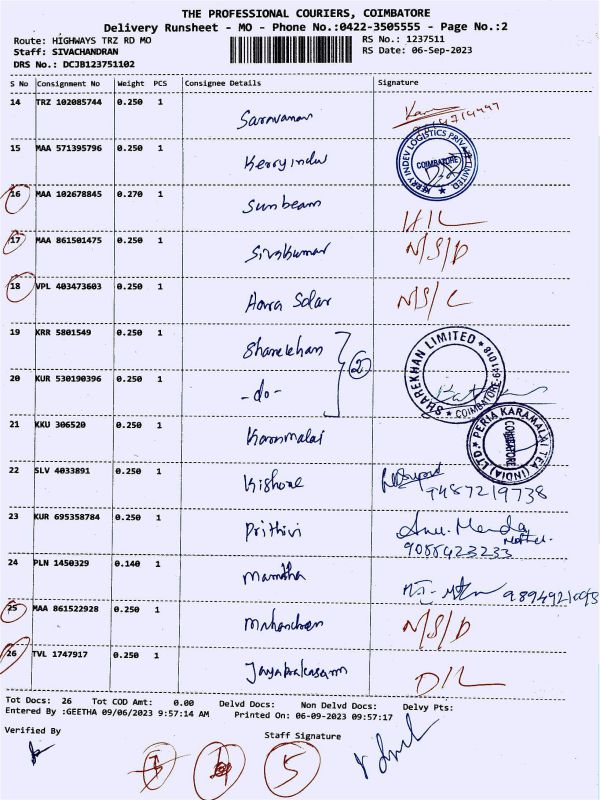 THE PROFESSIONAL COURIERS, COIMBATORE
Delivery Runsheet - MO - Phone No.:0422-3505555 - Page No.:2
Route: HIGHWAYS TRZ RD MO RS No.: 1237511
Staff: SIVACHANDRAN RS Date: 06-Sep-2023
DRS No.: DCJB123751102
S No Consignment No Weight PCS Consignee Details Signature
14 TRZ 102085744 0.250 1 Saravanan
15 MAA 571395796 0.250 1 Kerry indev KERRY INDEV LOGISTICS PRIVATE LIMITED COIMBATORE
16 MAA 102678845 0.270 1 Sunbeam H/L
17 MAA 861501475 0.250 1 Sivakumar N/S/D
18 VPL 403473603 0.250 1 Solar N/S/L
19 KRR 5801549 0.250 1 Sharekhan 2 SHAREKHAN LIMITED COIMBATORE-641018
20 KUR 530190396 0.250 1 -do-
21 KKU 306520 0.250 1 Karanmalai PERIA KARAMALAI TEA (INDIA) LTD. COIMBATORE
22 SLV 4033891 0.250 1 Kishore 9487219738
23 KUR 695358784 0.250 1 Prithivi
9088423233
24 PLN 1450329 0.140 1 Mamtha
25 MAA 861522928 0.250 1 N/S/D
26 TVL 1747917 0.250 1 Jayaprakasam D/L
Tot Docs: 26 Tot COD Amt: 0.00 Delvd Docs: Non Delvd Docs: Delvy Pts:
Entered By :GEETHA 09/06/2023 9:57:14 AM Printed On: 06-09-2023 09:57:17
Verified By Staff Signature
5